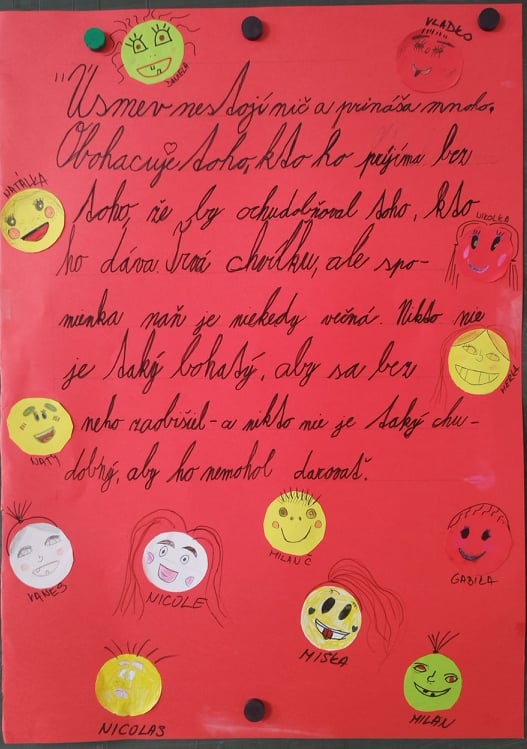 VLADKO
DANIELA
"Úsmev nestojí nič a prináša mnoho.
Obohacuje toho, kto ho prijíma bez
NATÁLKA
toho, že by ochudobňoval toho, kto
NIKOLKA
ho dáva. Trvá chvíľku, ale spo-
mienka naň je niekedy večná. Nikto nie
je taký bohatý, aby sa bez
neho zaobišiel - a nikto nie je taký chu-
NATY
dobný, aby ho nemohol darovať.
MILAN Č
VANES
NICOLE
GABIKA
MIŠKA
NICOLAS
MILAN